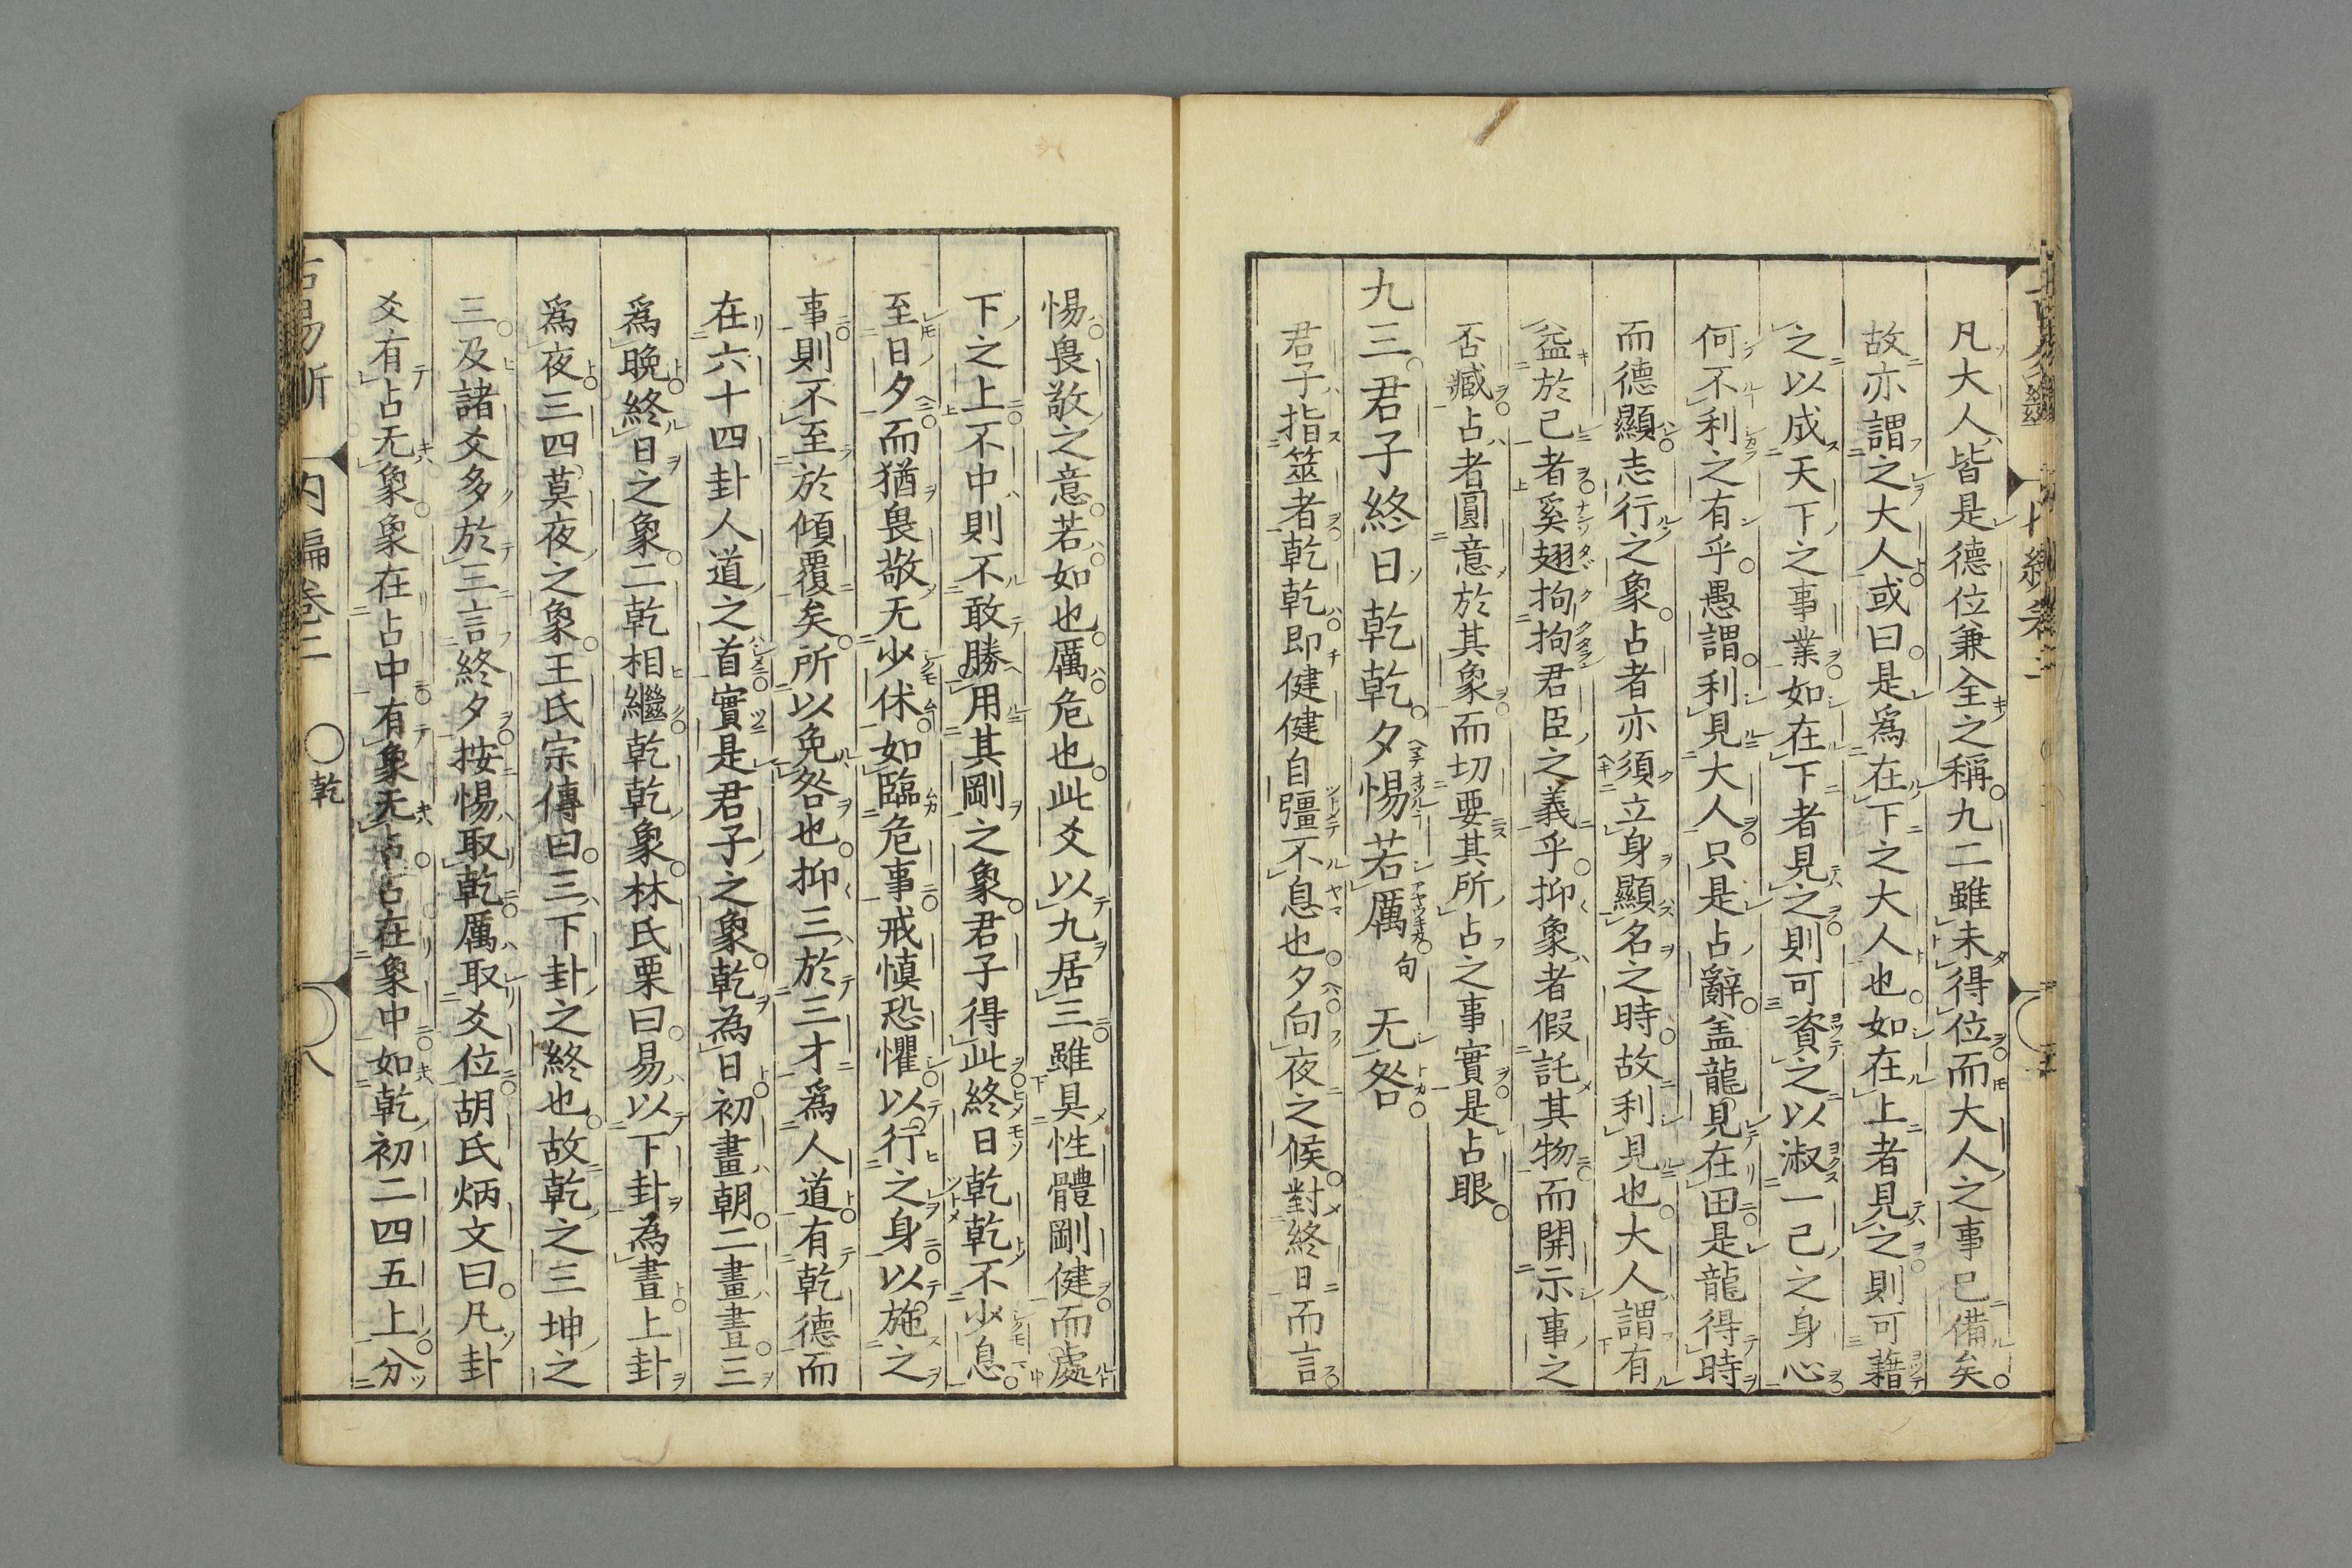 凡大人皆是德位兼全之稱九二雖未得位而大人之事已備矣
故亦謂之大人或曰是爲在下之大人也如在上者見之則可藉
之以成天下之事業如在下者見之則可資之以淑一己之身心
何不利之有乎愚謂利見大人只是占辭盖龍見在田是龍得時
而德顯志行之象占者亦須立身顯名之時故利見也大人謂有
益於己者奚翅拘拘君臣之義乎抑象者假託其物而開示事之
否臧占者圓意於其象而切要其所占之事實是占眼
九三君子終日乾乾夕惕若厲句无咎
君子指筮者乾乾即健健自彊不息也夕向夜之候對終日而言
惕畏敬之意若如也厲危也此爻以九居三雖具性體剛健而處
下之上不中則不敢勝用其剛之象君子得此終日乾乾不少息
至日夕而猶畏敬无少休如臨危事戒慎恐懼以行之身以施之
事則不至於傾覆矣所以免咎也抑三於三才爲人道有乾德而
在六十四卦人道之首實是君子之象乾為日初畫朝二畫晝三
爲晚終日之象二乾相繼乾乾象林氏栗曰易以下卦為晝上卦
爲夜三四莫夜之象王氏宗傳曰三下卦之終也故乾之三坤之
三及諸爻多於三言終夕按惕取乾厲取爻位胡氏炳文曰凡卦
爻有占无象象在占中有象无占占在象中如乾初二四五上分
古易斷 内編卷二 乾 八